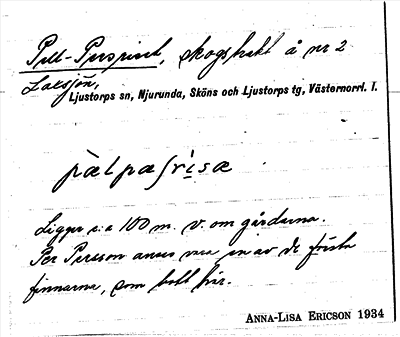 Pell-Persriset, skogstrakt å nr 2
Laxsjön,
Ljustorps sn, Njurunda, Sköns och Ljustorps tg, Västernorrl. l.
pæ̀lpæʃri̇sæ
Ligger c:a 100 m. v. om gårdarna.
Per Persson anses vara en av de första
finnarna, som bott här.
ANNA-LISA ERICSON 1934